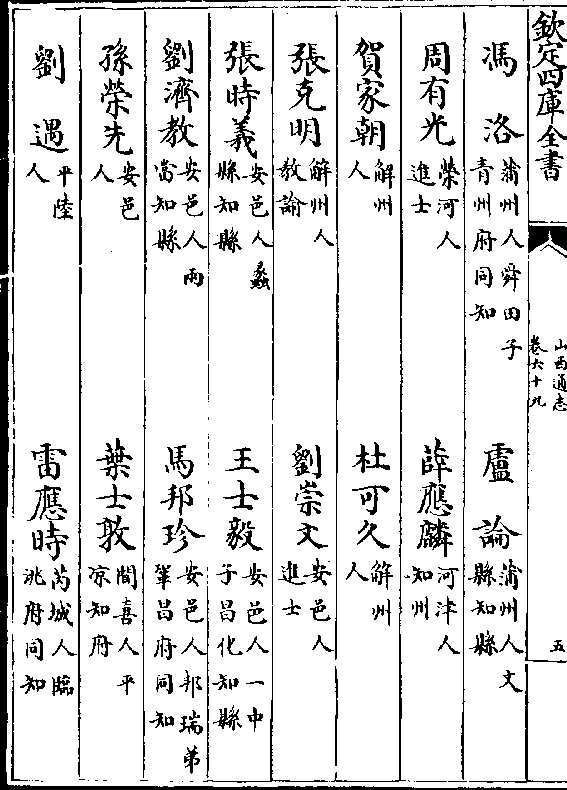 欽定四庫全書
山西通志
卷六十九
五
馮洛 蒲州人舜田子青州府同知 盧論 蒲州人文縣知縣
周有光 榮河人進士 薛應麟 河津人知州
賀家朝 解州人 杜可久 解州人
張克明 解州人教諭 劉崇文 安邑人進士
張時義 安邑人蠡縣知縣 王士毅 安邑人一中子昌化知縣
劉濟教 安邑人兩當知縣 馬邦珍 安邑人邦瑞弟鞏昌府同知
孫榮先 安邑人 葉士敦 聞喜人平凉知府
劉遇 平陸人 雷應時 芮城人臨洮府同知